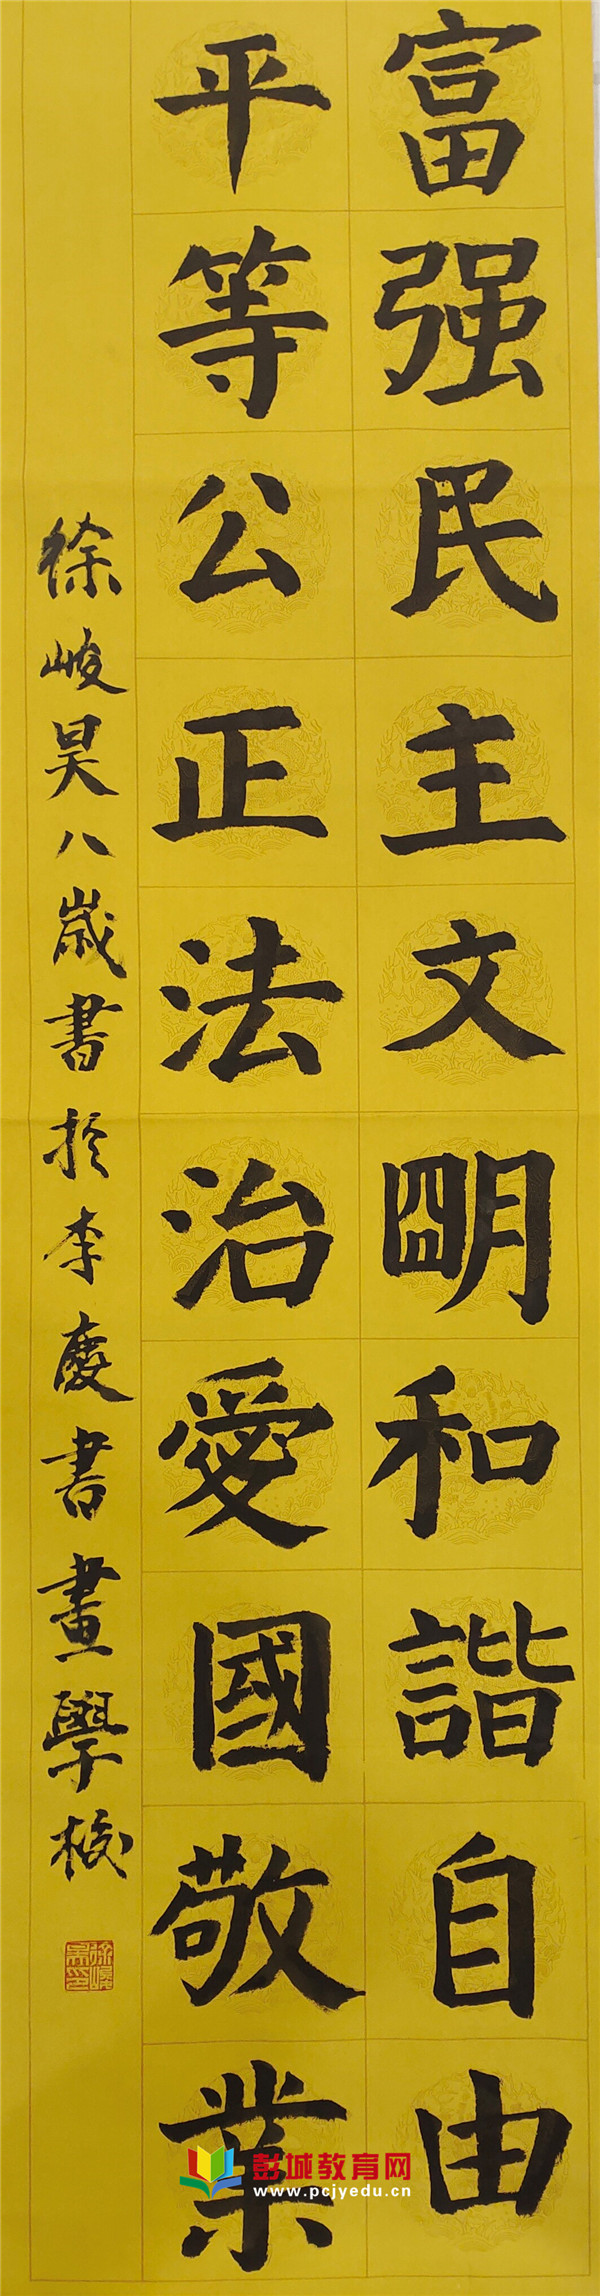 富强民主文明和諧自由
平等公正法治愛國敬業
徐峻昊八歲書於李慶書畫學校
彭城教育网
www.pcjyedu.cn